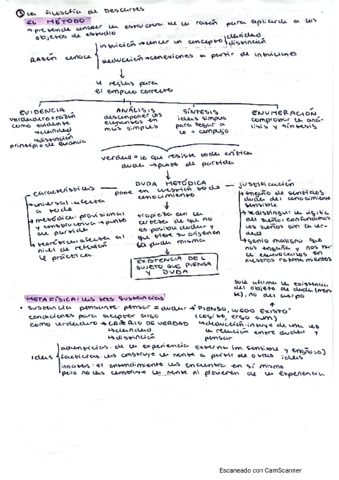 ① La filosofía de Descartes
EL MÉTODO
→ pretende conocer la estructura de la razón para aplicarla a los
objetos de estudio
claridad
intuición → conocer un concepto distinción
RAZÓN conoce
deducción → conexiones a partir de intuiciones
4 reglas para
el empleo correcto
EVIDENCIA ANÁLISIS SÍNTESIS ENUMERACIÓN
verdadero → razón descomponer los ideas simples comprobar el aná-
como evidente elementos en para llegar a lisis y síntesis
→ claridad más simples lo + complejo
→ distinción
principio de evidencia
verdad → lo que resiste toda crítica
duda → punto de partida
DUDA METÓDICA
características justificación
pone en cuestión todo
conocimiento
→ universal → afecta a todo
→ metódica → provisional
y constructiva → punto
de partida
→ teorética → afecta al
nivel de reflexión
no prácticas.
certeza de que no
es posible dudar y
la duda misma
EXISTENCIA DEL
SUJETO QUE PIENSA
Y DUDA
→ engaño de sentidos
duda del conocimiento
sensible
→ distinguir la vigilia
del sueño → confundimos
los sueños con la verdad
→ genio maligno que
nos engaña y nos hace
equivocarnos en
nuestros razonamientos
solo afirma la existencia
del objeto de duda (men-
te), no del cuerpo
METAFÍSICA: las tres sustancias
• sustancia pensante: pensar = dudar → "PIENSO, LUEGO EXISTO"
condiciones para aceptar algo (cogito, ergo sum)
como verdadero → CRITERIO DE VERDAD
→ claridad
→ distinción pensar
adventicias: de la experiencia externa (m. sensible y engañoso)
ideas facticias: las construye la mente a partir de otras ideas
innatas: el entendimiento las encuentra en sí mismo
pero no las construye la mente ni provienen de la experiencia.
Escaneado con CamScanner